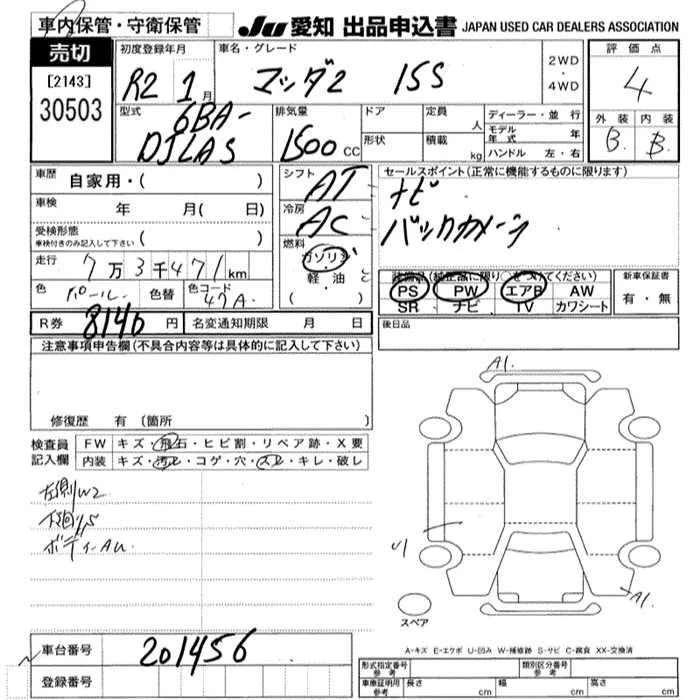 車内保管・守衛保管
JU 愛知 出品申込書 JAPAN USED CAR DEALERS ASSOCIATION
売切
[2143]
30503
初度登録年月
R2 1月
車名・グレード
マツダ2 15S
2WD
・
4WD
評価点
4
外装 内装
B B
型式
6BA-
DJLAS
排気量
1500 CC
ドア
形状
定員 人
積載 kg
ディーラー・並行
モデル年式 年
ハンドル 左・右
車歴 自家用・( )
車検 年 月( 日)
受検形態
車検付きのみ記入して下さい ( )
走行 7万3千471km
色 パール 色替 色コード 47A
シフト AT
冷房 AC
燃料
ガソリン
軽・油
・( )
セールスポイント(正常に機能するものに限ります)
ナビ
バックカメラ
PS PW エアB AW
SR ナビ TV カワシート
新車保証書
有・無
R券 8140円 名変通知期限 月 日
後日品
注意事項申告欄(不具合内容等は具体的に記入して下さい)
修復歴 有 〔箇所
検査員
記入欄
FW キズ・飛石・ヒビ割・リペア跡・X要
内装 キズ・汚レ・コゲ・穴・スレ・キレ・破レ
左側W2
下廻りS
A1.
U1
A1.
スペア
A-キズ E-エクボ U-凹み W-補修跡 S-サビ C-腐食 XX-交換済
車台番号 201456
登録番号
形式指定番号 参考
類別区分番号 参考
車庫証明用 参考
長さ cm
幅 cm
高さ cm